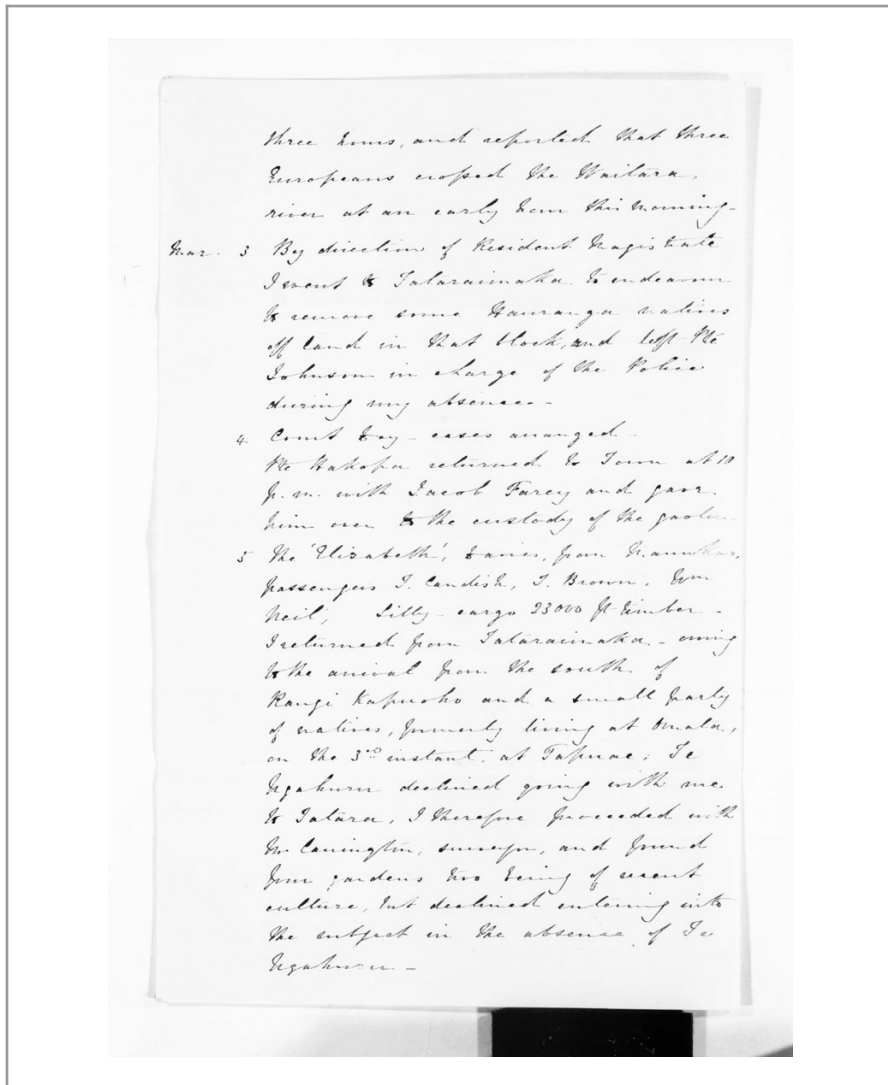 three hours, and reported that three
Europeans crossed the Waitara
river at an early hour this morning -
Mar. 3 By direction of Resident Magistrate
I went to Tataraimaka to endeavour
to remove some Hauranga natives
off land in that block, and left Pte
Johnson in charge of the Police
during my absence. -
4. Court day - cases arranged -
Pte Hakopa returned to Town at 10
p.m. with Jacob Farey and gave
him over to the custody of the gaoler
5 The 'Elizabeth', Davies, from Manukau,
passengers J. Candish, J. Brown, Wm
Neil, Lilly - cargo 23000 ft timber -
I returned from Tataraimaka - owing
to the arrival from the south of
Rangi Kapuoho and a small party
of natives, formerly living at Omata,
on the 3rd instant, at Tapuae; Te
Ngahuru declined going with me
to Tatara, I therefore proceeded with
Mr Carrington, surveyor, and found
four gardens two being of recent
culture, but declined entering into
the subject in the absence of Te
Ngahuru -